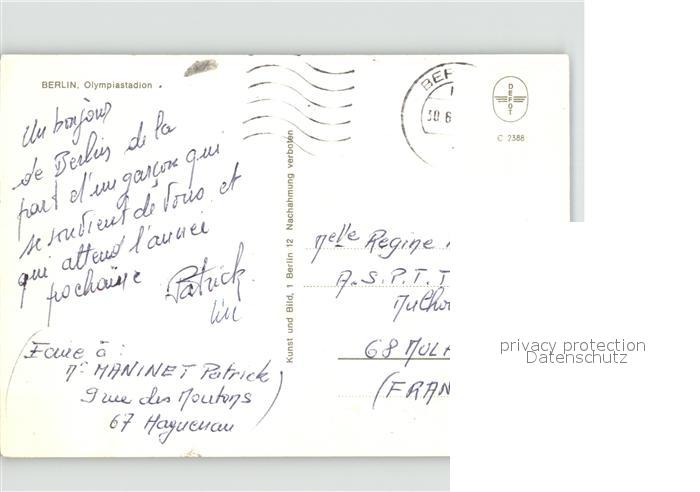 BERLIN, Olympiastadion
Un bonjour
de Berlin de la
part d'un garçon qui
se souvient de vous et
qui attend l'année
prochaine Patrick
(Ecrire à :
Mr MANINET Patrick)
9 rue des Moutons
67 Haguenau
Kunst und Bild, 1 Berlin 12 Nachahmung verboten
BER
30.6
DEFOT
C 2388
Melle Regine
A.S.P.T.T
Mulho
68 MULH
(FRAN
privacy protection
Datenschutz